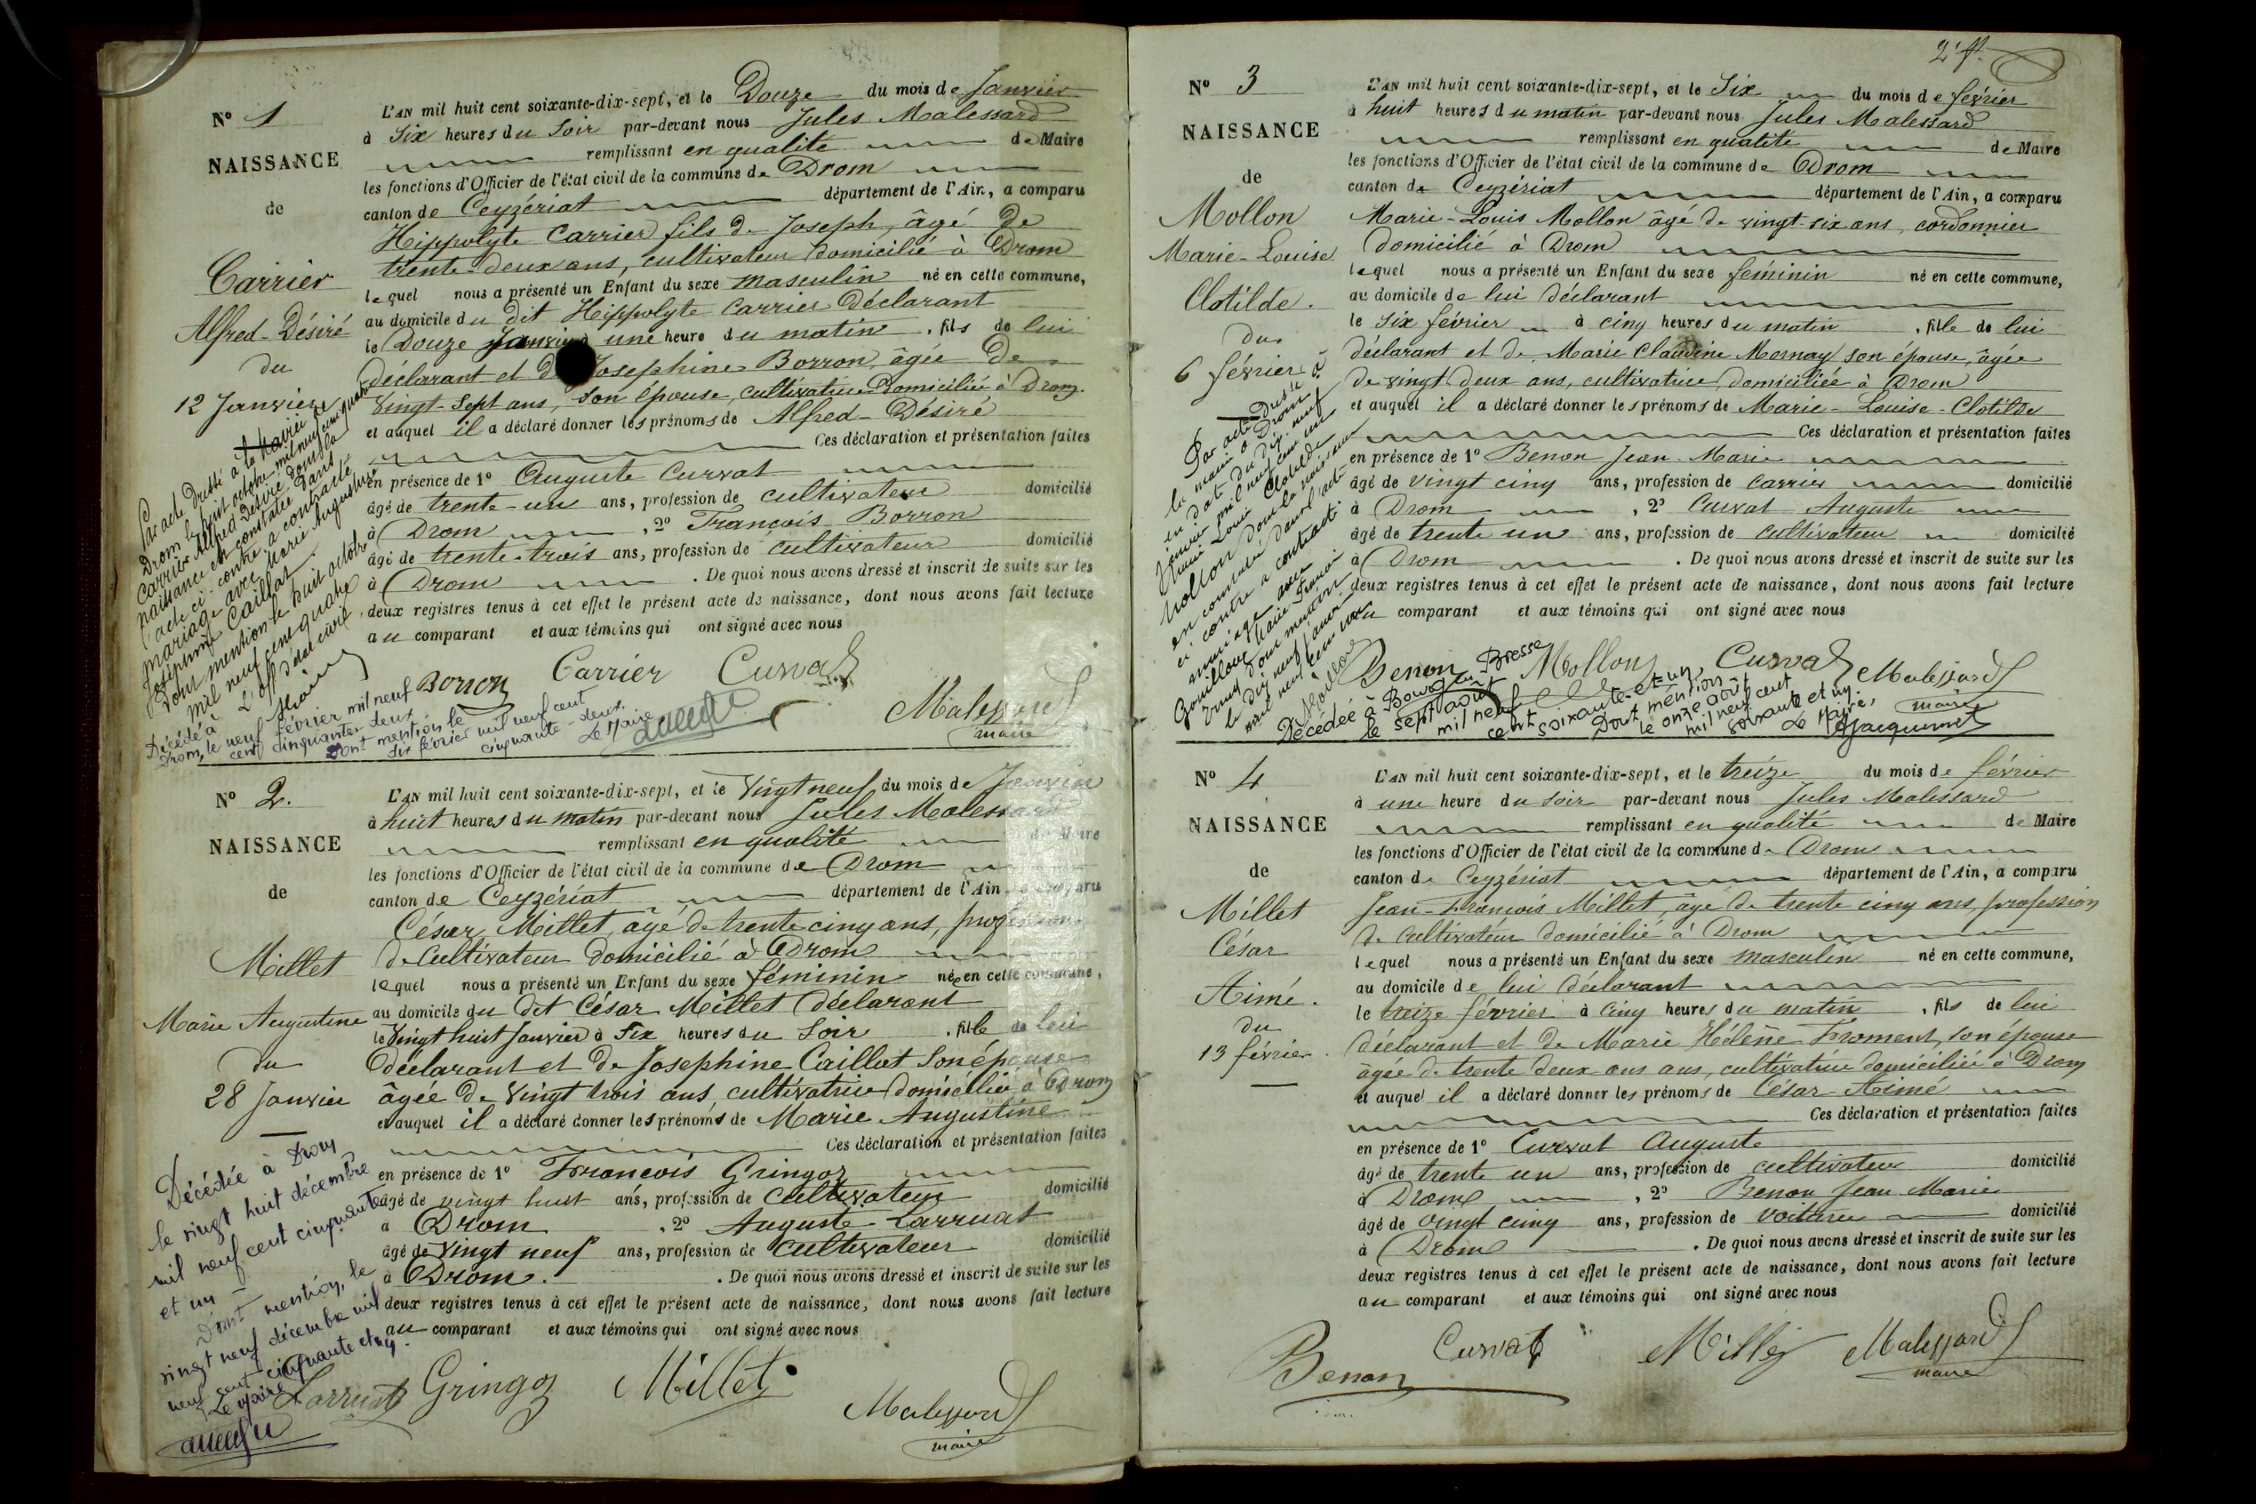 Nº 1
NAISSANCE
de
Carrier
Alfred-Désiré
du
12 Janvier
L'AN mil huit cent soixante-dix-sept, et le Douze du mois de Janvier
à Six heures du Soir par-devant nous Jules Malessard
remplissant en qualité de Maire
les fonctions d'Officier de l'état civil de la commune de Drom
canton de Ceyzériat département de l'Ain, a comparu
Hippolyte Carrier fils de Joseph, âgé de
trente-deux ans, cultivateur domicilié à Drom
lequel nous a présenté un Enfant du sexe masculin né en cette commune,
au domicile du dit Hippolyte Carrier Déclarant
le Douze Janvier à une heure du matin, fils de lui
déclarant et de Josephine Borron, âgée de
vingt-sept ans, son épouse, cultivatrice Domiciliée à Drom.
et auquel il a déclaré donner les prénoms de Alfred-Désiré
Ces déclaration et présentation faites
en présence de 1º Auguste Curvat
âgé de trente-un ans, profession de cultivateur domicilié
à Drom, 2º François Borron
âgé de trente-trois ans, profession de cultivateur domicilié
à Drom. De quoi nous avons dressé et inscrit de suite sur les
deux registres tenus à cet effet le présent acte de naissance, dont nous avons fait lecture
au comparant et aux témoins qui ont signé avec nous
Par acte dressé à la Mairie de
Drom le huit octobre mil neuf cent quatre
Carrier Alfred Désiré dont la
naissance est constatée dans
l'acte ci-contre a contracté
mariage avec Marie Augustine
Joséphine Caillat.
Dont mention le huit octobre
mil neuf cent quatre
L'off. d'état civil
Borron Carrier Curvat
Malessard
maire
Décédé à
Drom, le neuf février mil neuf
cent cinquante-deux
Dont mention le
dix février mil neuf cent
cinquante-deux.
Le Maire
Nº 2.
NAISSANCE
de
Millet
Marie Augustine
du
28 Janvier
L'AN mil huit cent soixante-dix-sept, et le Vingt neuf du mois de Janvier
à huit heures du matin par-devant nous Jules Malessard
remplissant en qualité de Maire
les fonctions d'Officier de l'état civil de la commune de Drom
canton de Ceyzériat département de l'Ain, a comparu
César Millet, âgé de trente cinq ans, profession
de Cultivateur domicilié à Drom
lequel nous a présenté un Enfant du sexe féminin née en cette commune,
au domicile du dit César Millet déclarant
le Vingt huit Janvier à Six heures du Soir, fille de lui
déclarant et de Josephine Caillat Son épouse
âgée de Vingt trois ans, cultivatrice domiciliée à Drom
et auquel il a déclaré donner les prénoms de Marie Augustine
Ces déclaration et présentation faites
en présence de 1º François Gringoz
âgé de vingt huit ans, profession de Cultivateur domicilié
à Drom, 2º Auguste Larruat
âgé de Vingt neuf ans, profession de Cultivateur domicilié
à Drom. De quoi nous avons dressé et inscrit de suite sur les
deux registres tenus à cet effet le présent acte de naissance, dont nous avons fait lecture
au comparant et aux témoins qui ont signé avec nous
Décédée à Drom
le vingt huit décembre
mil neuf cent cinquante
et un
Dont mention, le
vingt neuf décembre mil
neuf cent cinquante et un.
Le Maire
Larruat Gringoz Millet
Malessard
maire
2e f.
Nº 3
NAISSANCE
de
Mollon
Marie-Louise
Clotilde.
du
6 février
L'AN mil huit cent soixante-dix-sept, et le Six du mois de février
à huit heures du matin par-devant nous Jules Malessard
remplissant en qualité de Maire
les fonctions d'Officier de l'état civil de la commune de Drom
canton de Ceyzériat département de l'Ain, a comparu
Marie-Louis Mollon âgé de vingt-six ans, cordonnier
domicilié à Drom
lequel nous a présenté un Enfant du sexe féminin né en cette commune,
au domicile de lui déclarant
le Six février à cinq heures du matin, fille de lui
déclarant et de Marie Claudine Mornay son épouse, âgée
de vingt deux ans, cultivatrice, domiciliée à Drom
et auquel il a déclaré donner les prénoms de Marie-Louise-Clotilde
Ces déclaration et présentation faites
en présence de 1º Benon Jean-Marie
âgé de vingt cinq ans, profession de carrier domicilié
à Drom, 2º Curvat Auguste
âgé de trente un ans, profession de cultivateur domicilié
à Drom. De quoi nous avons dressé et inscrit de suite sur les
deux registres tenus à cet effet le présent acte de naissance, dont nous avons fait lecture
au comparant et aux témoins qui ont signé avec nous
Par acte dressé à
la mairie de Drom
en date du dix-neuf
Janvier mil neuf cent un
Marie Louise Clotilde
Mollon dont la naissance
est constatée dans l'acte
ci-contre a contracté
mariage avec
Marie François
dont mention
le dix neuf janvier
mil neuf cent un
Benon Mollon Curvat Malessard
maire
Décédée à Bourg en Bresse
le sept août
mil neuf
cent soixante-et-un
Dont mention
le onze août
mil neuf cent
soixante et un.
Le Maire,
Jacquemet
Nº 4
NAISSANCE
de
Millet
César
Aimé.
du
13 février.
L'AN mil huit cent soixante-dix-sept, et le treize du mois de février
à une heure du soir par-devant nous Jules Malessard
remplissant en qualité de Maire
les fonctions d'Officier de l'état civil de la commune de Drom
canton de Ceyzériat département de l'Ain, a comparu
Jean-François Millet âgé de trente cinq ans, profession
de Cultivateur domicilié à Drom
lequel nous a présenté un Enfant du sexe masculin né en cette commune,
au domicile de lui déclarant
le treize février à cinq heures du matin, fils de lui
déclarant et de Marie Hélène Froment, son épouse
âgée de trente deux ans ans, cultivatrice domiciliée à Drom
et auquel il a déclaré donner les prénoms de César-Aimé
Ces déclaration et présentation faites
en présence de 1º Curvat Auguste
âgé de trente un ans, profession de cultivateur domicilié
à Drom, 2º Benon Jean-Marie
âgé de vingt cinq ans, profession de voiturier domicilié
à Drom. De quoi nous avons dressé et inscrit de suite sur les
deux registres tenus à cet effet le présent acte de naissance, dont nous avons fait lecture
au comparant et aux témoins qui ont signé avec nous
Benon Curvat Millet Malessard
maire